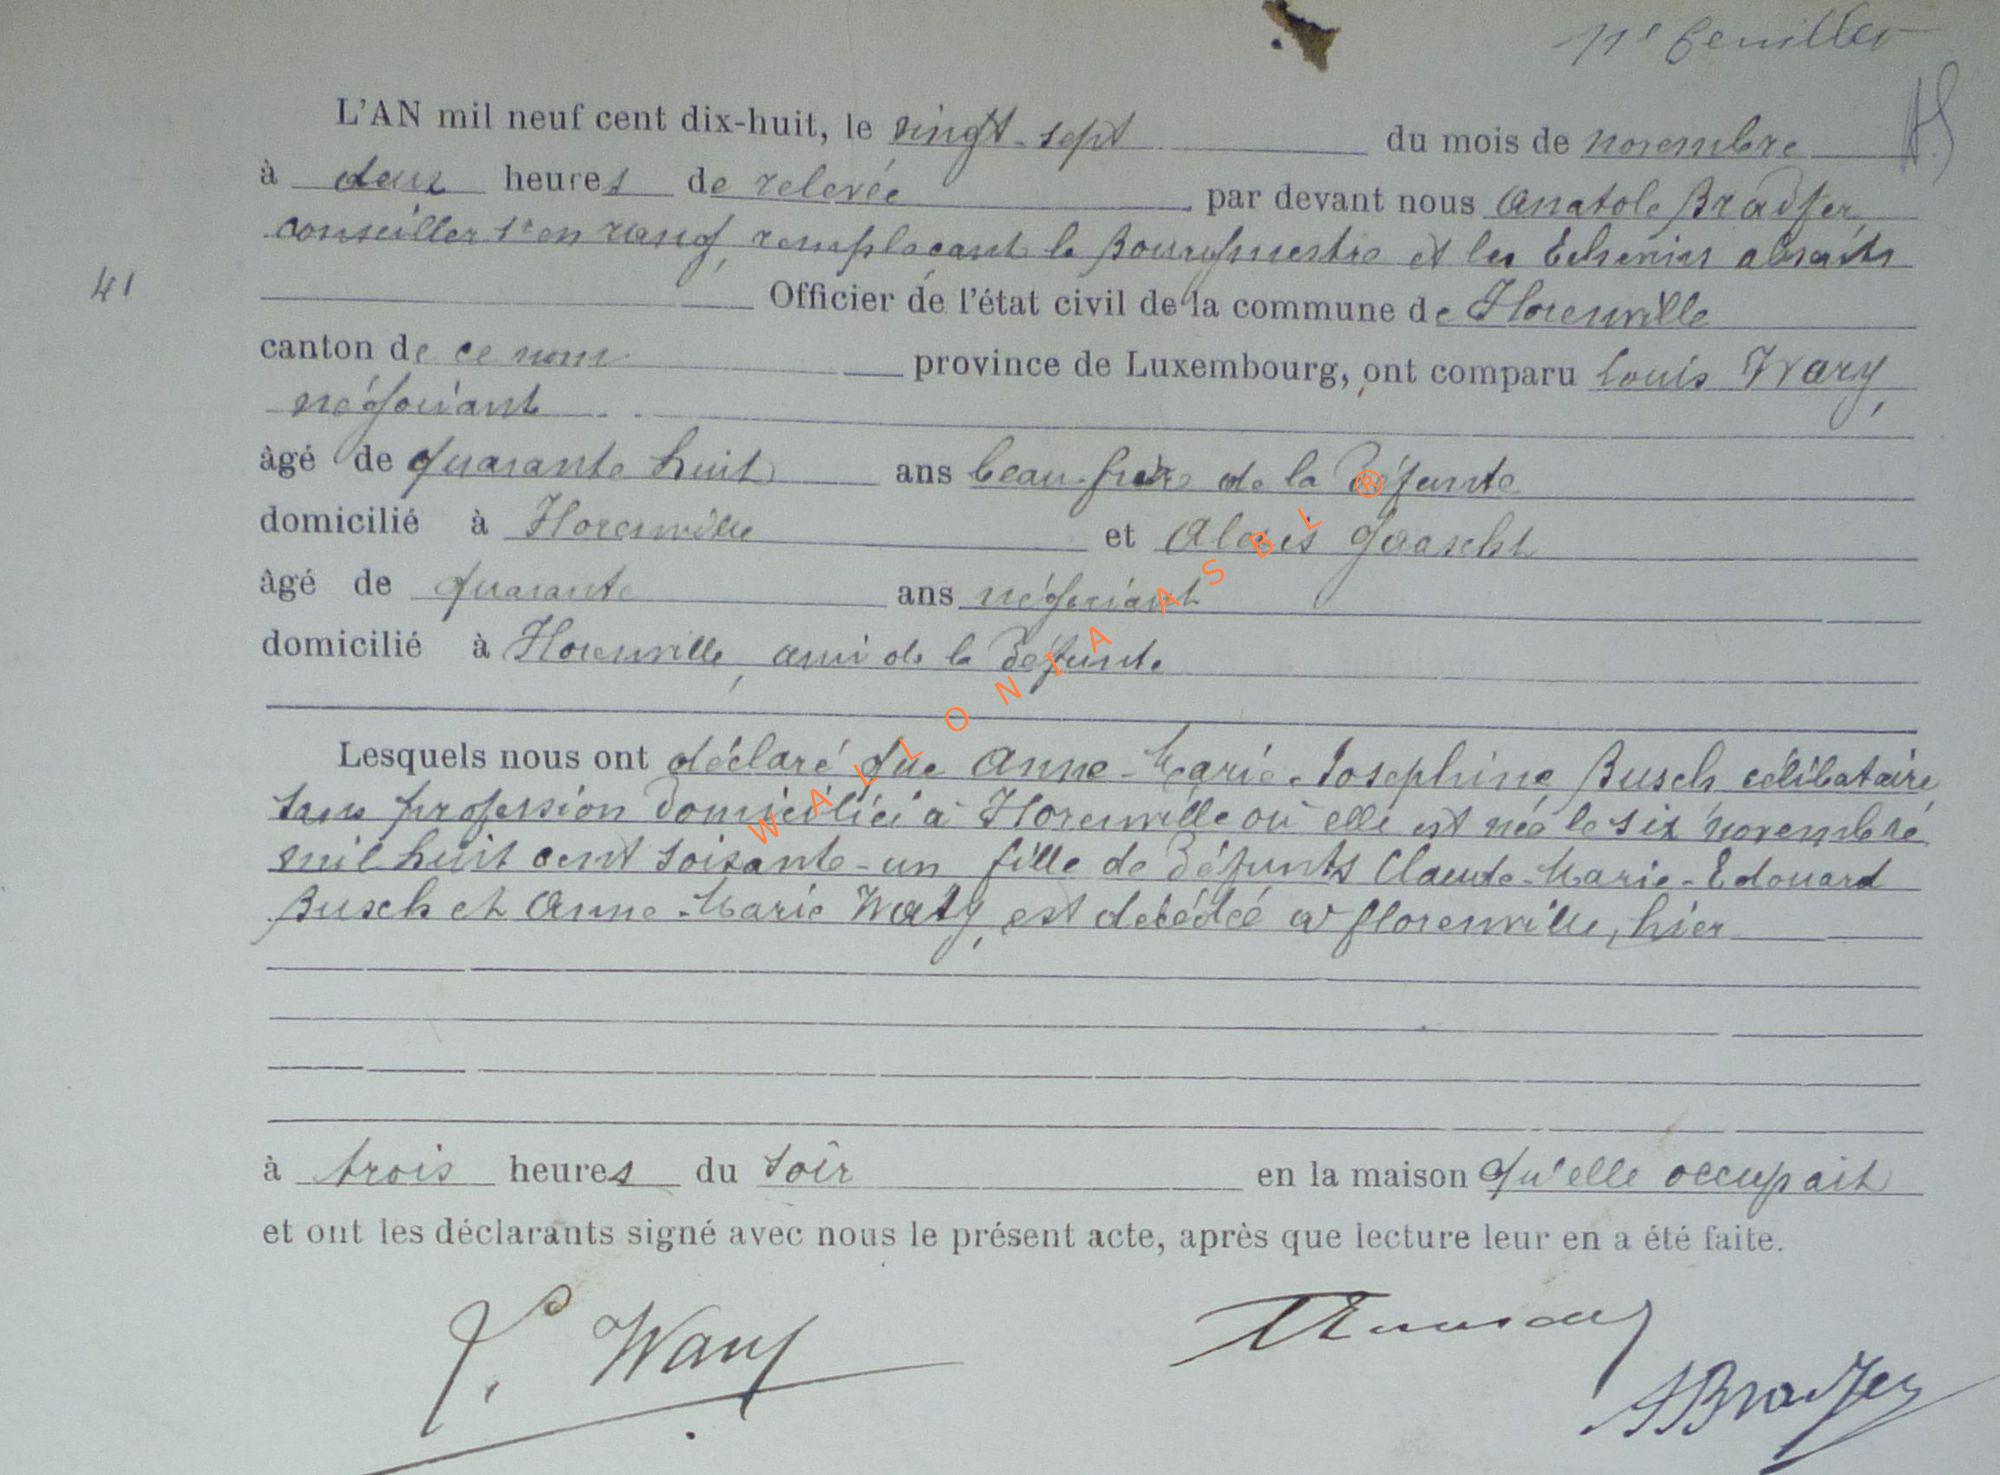 11e feuillet
L'AN mil neuf cent dix-huit, le vingt-sept du mois de novembre
à deux heures de relevée par devant nous Anatole Bradfer,
conseiller 1er en rang, remplaçant le Bourgmestre et les Echevins absents
41
Officier de l'état civil de la commune de Florenville
canton de ce nom province de Luxembourg, ont comparu Louis Wary,
négociant
âgé de quarante huit ans beau-frère de la défunte
domicilié à Florenville et Aloïs Gaascht
âgé de quarante ans négociant
domicilié à Florenville, ami de la défunte
Lesquels nous ont déclaré que Anne-Marie-Josephine Busch célibataire,
sans profession domiciliée à Florenville où elle est née le six novembre
mil huit cent soixante-un fille de défunts Claude-Marie-Edouard
Busch et Anne-Marie Waty, est décédée à Florenville, hier
à trois heures du soir en la maison qu'elle occupait
et ont les déclarants signé avec nous le présent acte, après que lecture leur en a été faite.
L. Wary
ABradfer
WALLONIA ASBL ®